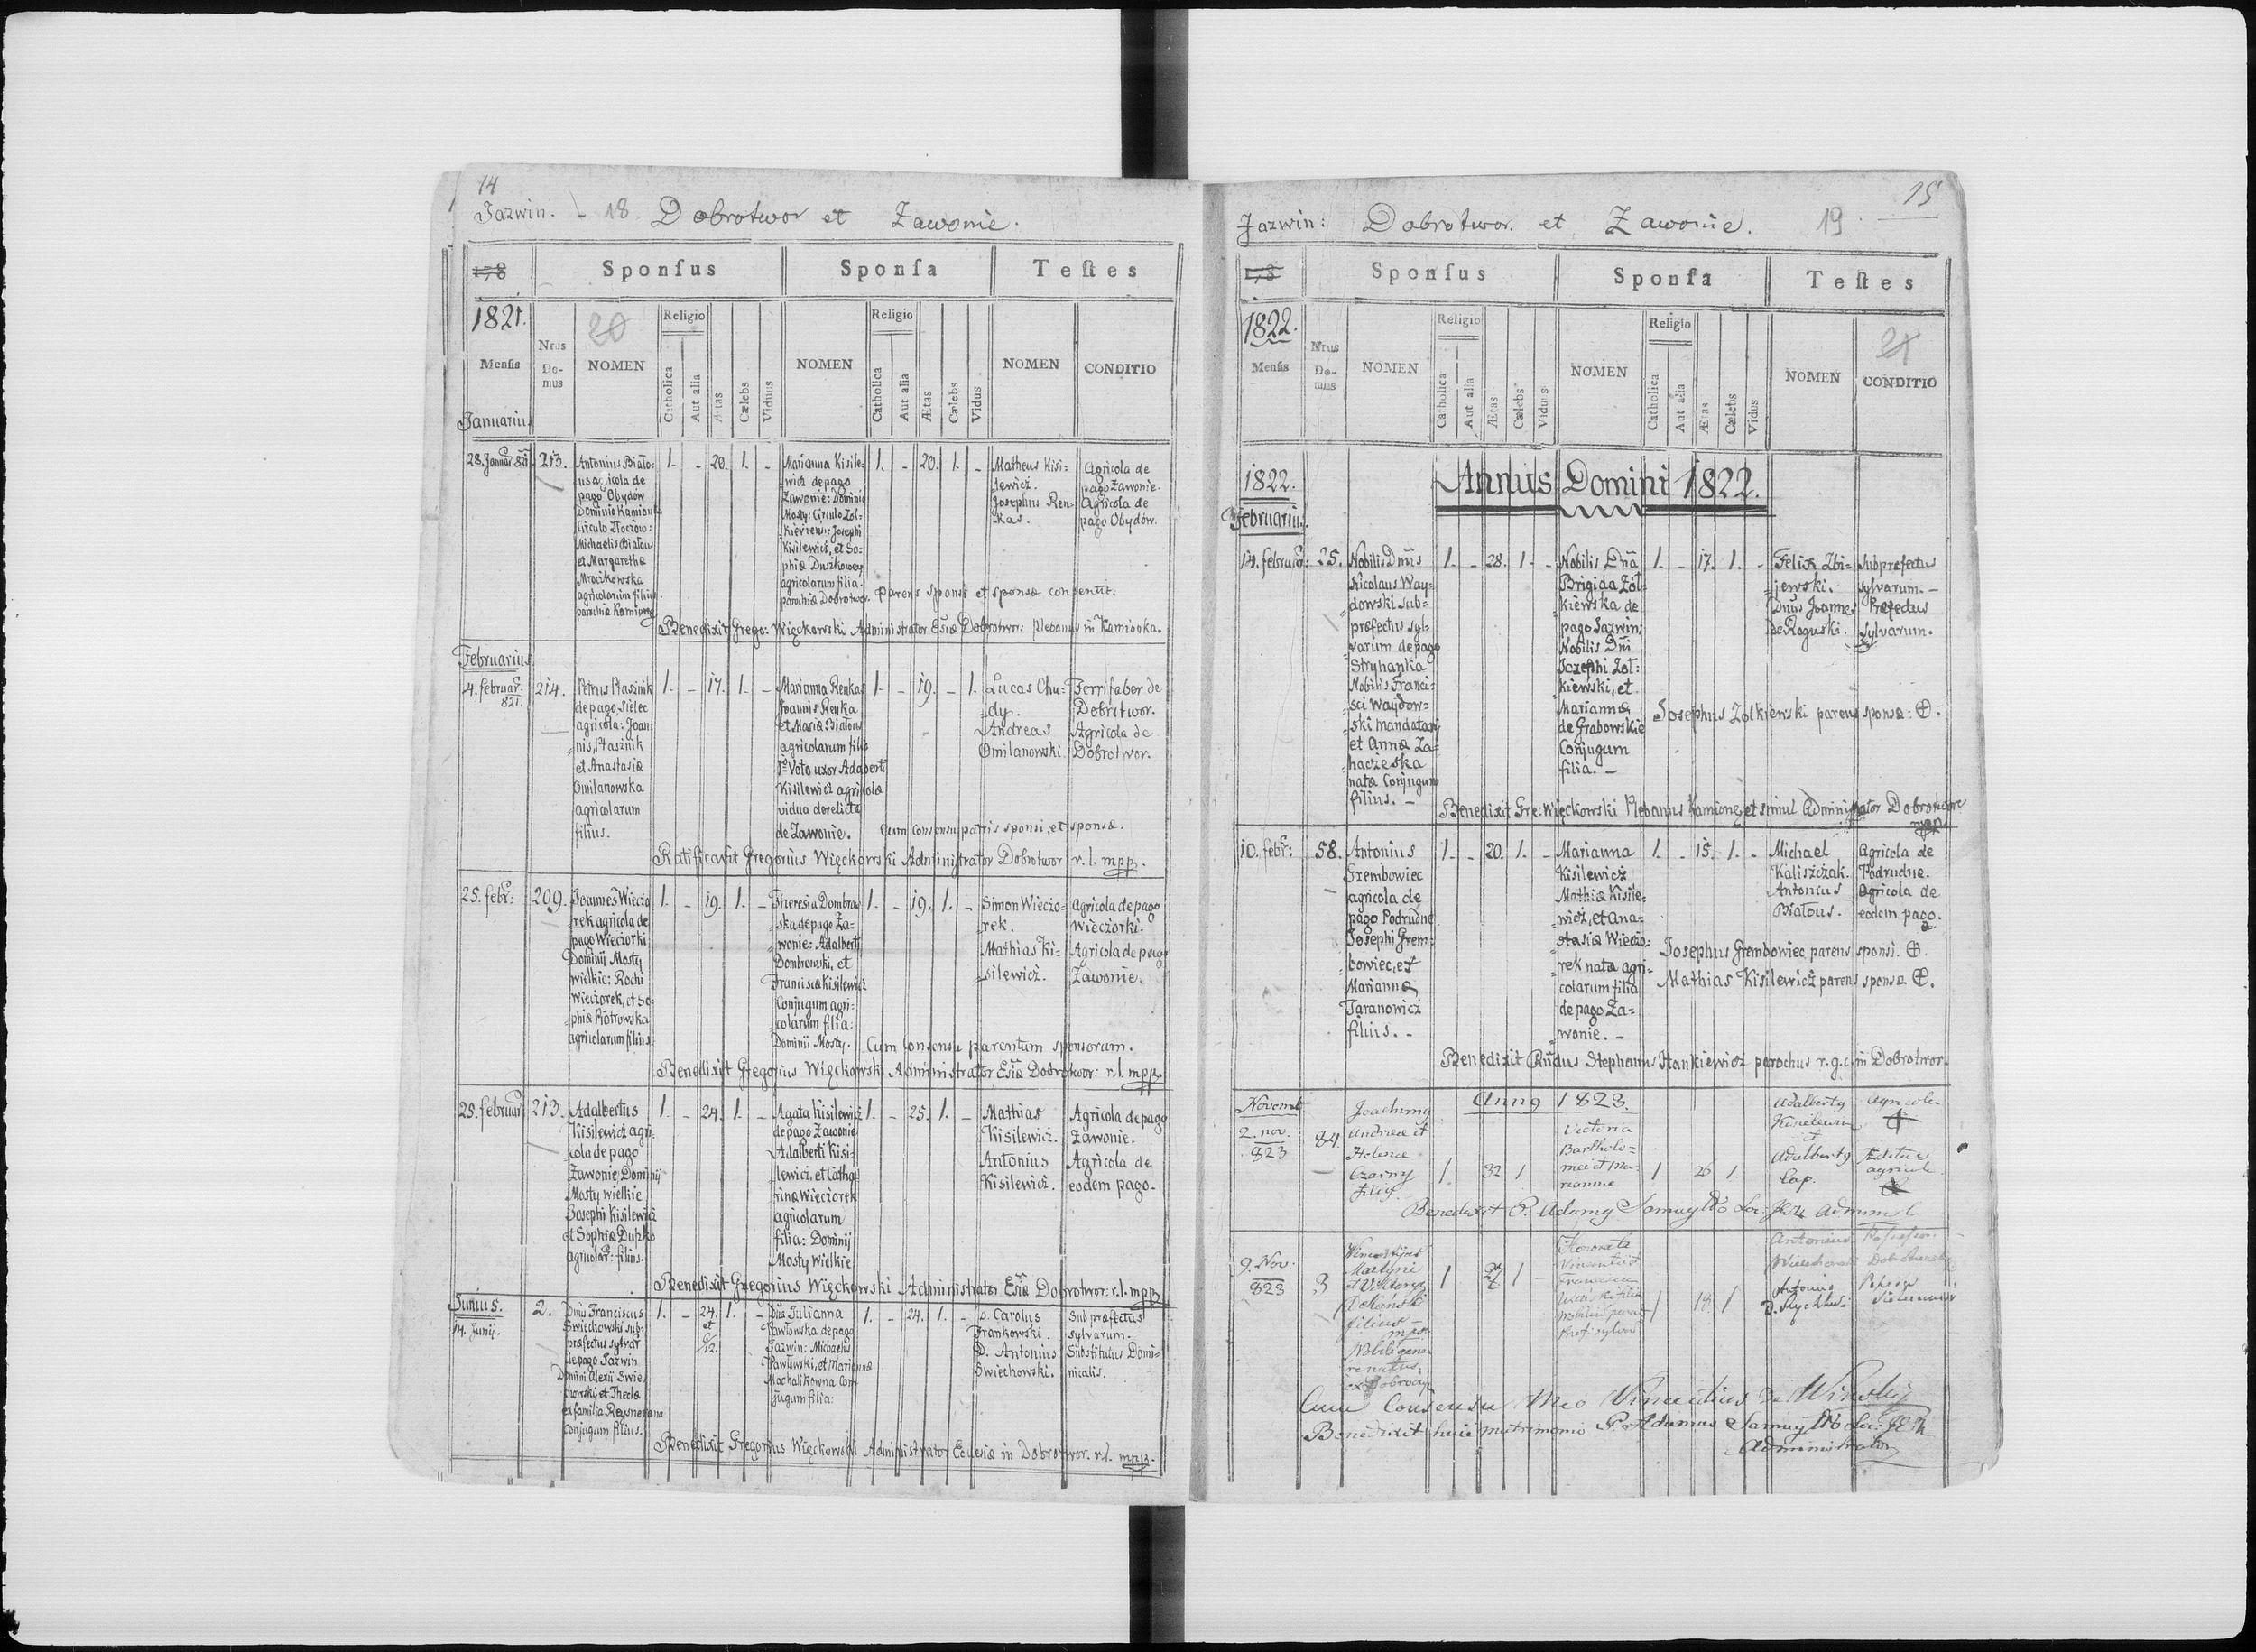 14
Jazwin. - 18 Dobrotwor et Zawonie.
178
Sponsus
Sponsa
Testes
1821.
20
Mensis
Nrus Domus
NOMEN
Religio
Catholica
Aut alia
Ætas
Cælebs
Viduus
NOMEN
Religio
Catholica
Aut alia
Ætas
Cælebs
Vidus
NOMEN
CONDITIO
Januarius
28. Januar 821
213.
Antonius Biało-
us agricola de
pago Obydów
Dominio Kamionka
Circulo Złoczow:
Michaelis Białous
et Margaretha
Mrocikowska
agricolarum filius
parochiæ Kamionka
1. - 20. 1. -
Marianna Kisile-
wicz de pago
Zawonie: Dominio
Mosty: Circulo Zol-
kieviensi: Josephi
Kisilewicz, et So-
phiæ Duszkowey
agricolarum filia.
parochiæ Dobrotwor.
1. - 20. 1. -
Matheus Kisi-
lewicz.
Josephus Ren-
kas.
Agricola de
pago Zawonie.
Agricola de
pago Obydów.
Parens sponsi et sponsæ consentit.
Benedixit Grego: Więckowski Administrator Esiæ Dobrotwor: Plebanus in Kamionka.
Februarius
4. februar. 821.
214.
Petrus Ptasinik
de pago Sielec
agricola: Joan-
nis, Ptasinik
et Anastasiæ
Omilanowska
agricolarum
filius.
1. - 17. 1. -
Marianna Renkas
Joannis Renka
et Mariæ Białous
agricolarum filia
1º Voto uxor Adalberti
Kisilewicz agricolæ
vidua derelicta
de Zawonie.
1. - 19. - 1.
Lucas Chu-
dy.
Andreas
Omilanowski.
Ferrifaber de
Dobrotwor.
Agricola de
Dobrotwor.
Cum consensu patris sponsi, et sponsæ.
Ratificavit Gregorius Więckowski Administrator Dobrotwor r. l. mpp.
25. febr:
209.
Joannes Wiecio
rek agricola de
pago Wieciorki
Dominij Mosty
wielkie: Rochi
Wieciorek, et So-
phiæ Piotrowska
agricolarum filius.
1. - 19. 1. -
Theresia Dombrow-
ska de pago Za-
wonie: Adalberti
Dombrowski, et
Franciscæ Kisilewicz
Conjugum agri-
colarum filia:
Dominii Mosty.
1. - 19. 1. -
Simon Wiecio-
rek.
Mathias Ki-
silewicz.
Agricola de pago
Wieciorki.
Agricola de pago
Zawonie.
Cum Consensu parentum sponsorum.
Benedixit Gregorius Więckowski Administrator Esiæ Dobrotwor: r. l. mpp.
25. februar
213.
Adalbertus
Kisilewicz agri-
cola de pago
Zawonie Dominij
Mosty wielkie
Josephi Kisilewicz
et Sophiæ Duszko
agricolar: filius.
1. - 24. 1. -
Agata Kisilewicz
de pago Zawonie
Adalberti Kisi-
lewicz, et Catha-
rinæ Wieciorek
agricolarum
filia: Dominij
Mosty Wielkie
1. - 25. 1. -
Mathias
Kisilewicz.
Antonius
Kisilewicz.
Agricola de pago
Zawonie.
Agricola de
eodem pago.
Benedixit Gregorius Więckowski Administrator Esiæ Dobrotwor: r. l. mpp.
Junius.
14. Junij.
2.
Dnus Franciscus
Swiechowski sub-
præfectus sylvar
de pago Jazwin
Domini Alexii Swie-
chowski, et Theclæ
ex familia Reysnerowna
Conjugum filius.
1. - 24. et 6/12. 1. -
Dna Julianna
Pawłowska de pago
Jazwin: Michaelis
Pawlewski, et Mariannæ
Machalikowna Con-
jugum filia:
1. - 24. 1. -
D. Carolus
Frankowski.
D. Antonius
Swiechowski.
Subpræfectus
sylvarum.
Substitutus Domi-
nicalis.
Benedixit Gregorius Więckowski Administrator Eclesiæ in Dobrotwor. r. l. mpp.
15
Jazwin: Dobrotwor. et Zawonie. 19
178
Sponsus
Sponsa
Testes
1822.
21
Mensis
Nrus Domus
NOMEN
Religio
Catholica
Aut alia
Ætas
Cælebs
Viduus
NOMEN
Religio
Catholica
Aut alia
Ætas
Cælebs
Vidus
NOMEN
CONDITIO
1822.
Annus Domini 1822.
Februarius.
25.
Nobilis Dnus
Nicolaus Way-
dowski sub-
præfectus syl-
varum de pago
Stryhanka
Nobilis Franci-
sci Waydow-
ski mandatarij
et Annæ Za-
hacżeska
nata Conjugum
filius. -
1. - 28. 1. -
Nobilis Dna
Brigida Zol-
kiewska de
pago Jazwin:
Nobilis Dni
Jozephi Zol-
kiewski, et
Mariannæ
de Grabowskie
Conjugum
filia. -
1. - 17. 1. -
Felix Zbi-
jewski.
Dnus Joannes
de Roguski.
Subpræfectus
sylvarum. -
Præfectus
Sylvarum.
Josephus Zolkiewski parens sponsæ. ⊕.
Benedixit Gre: Więckowski Plebanus Kamione, et simul Administrator Dobrotwor
mpp
10. febr:
58.
Antonius
Grembowiec
agricola de
pago Podrudne
Josephi Grem-
bowiec, et
Mariannæ
Taranowicz
filius. -
1. - 20. 1. -
Marianna
Kisilewicz
Mathiæ Kisile-
wicz, et Ana-
stasiæ Wiecio-
rek natæ agri-
colarum filia
de pago Za-
wonie. -
1. - 15. 1. -
Michael
Kaliszczak.
Antonius
Białous.
Agricola de
Podrudne.
Agricola de
eodem pago.
Josephus Grembowiec parens sponsi. ⊕.
Mathias Kisilewicz parens sponsæ ⊕.
Benedixit Rndus Stephanus Stankiewicz parochus r. g. c. in Dobrotwor.
Novemb
Anno 1823.
2. nov. 823
84.
Joachimy
Andreæ et
Helenæ
Czarny
filius
1. 32. 1
Victoria
Bartholo-
mei et Ma-
rianne
1 26 1.
Adalberty
Kisielewicz
et
Adalberty
Cap.
Agricola
agricola
Benedixit P. Adamy Samuyłło Loc: Administ
9. Nov: 823
3
Martyni
filius
mpp
1 1
Vincentii et
1 18 1
Antonius
Antonius
Cum Consensu Meo Vincentius de
Benedixit huic matrimonio P. Adamus Samuyłło Loc:
Administrator